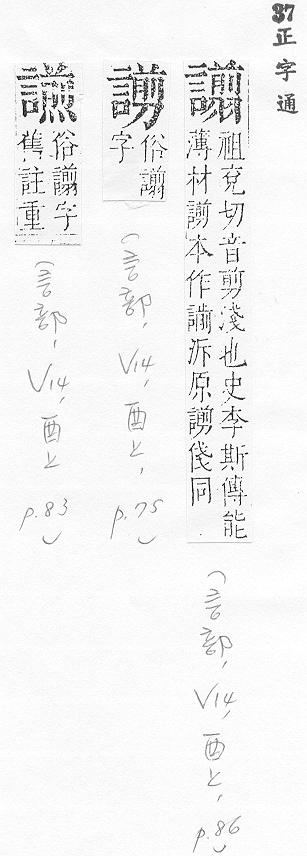 37 正字通
譾 祖兗切音剪淺也史李斯傳能
薄材謭本作譾泝原謭俴同
(言部, V14, 酉上, p.86)
謭 俗譾
字
(言部, V14, 酉上, p.75)
俗譾字
舊註重
(言部, V14, 酉上, p.83)